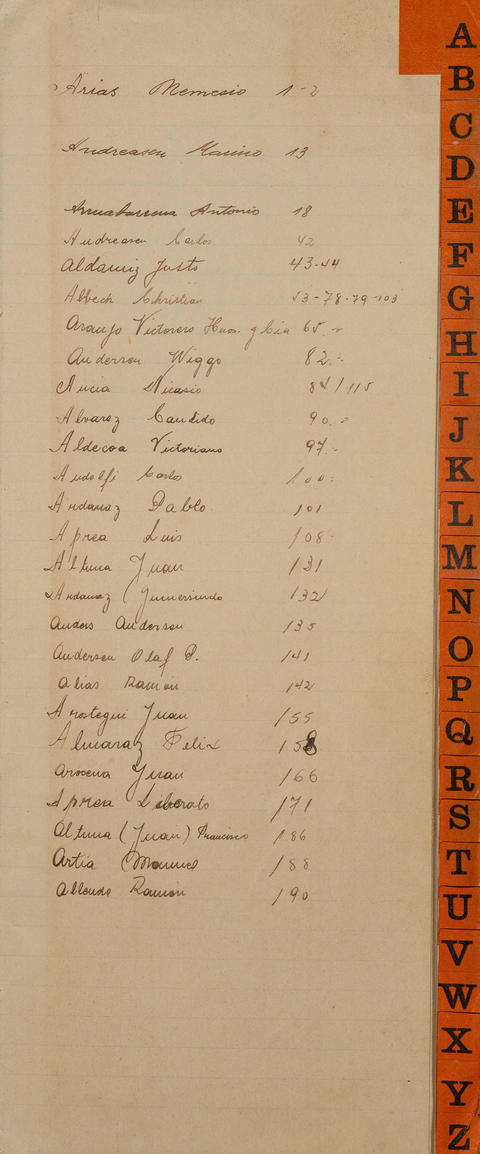 Arias Memesio 1-2
Andreasen Marino 13
Antonio 18
Andreasen Carlos 42
Aldamiz Justo 43-44
Albeck Christian 53-78-79-103
Araujo Victorero Hnos. y Cia 65.-
Anderson Wiggo 82.-
Ancia Nicasio 84/115
Alvarez Candido 90.-
Aldecoa Victoriano 97.-
Andolfi Carlos 100-
Andanaz Pablo 101
Aprea Luis 108-
Altuna Juan 131
Andanaz Gumersindo 132
Anders Anderson 135
Andersen Olaf P. 141
Alias Ramón 142
Arostegui Juan 155
Almaraz Felix 158
Arocena Juan 166
Aprea Liberato 171
Altuna (Juan) Francisco 186
Artia Manuel 188
Allende Ramón 190
A
B
C
D
E
F
G
H
I
J
K
L
M
N
O
P
Q
R
S
T
U
V
W
X
Y
Z